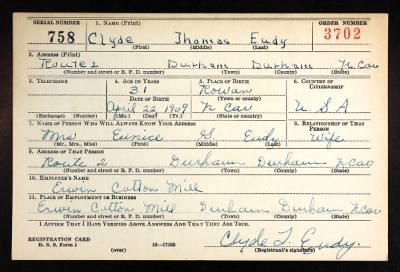 SERIAL NUMBER 1. NAME (Print) ORDER NUMBER
758 Clyde Thomas Eudy 3702
(First) (Middle) (Last)
2. ADDRESS (Print)
Route 2 Durham Durham N. Car
(Number and street or R. F. D. number) (Town) (County) (State)
3. TELEPHONE 4. AGE IN YEARS 5. PLACE OF BIRTH 6. COUNTRY OF CITIZENSHIP
31 Rowan
DATE OF BIRTH (Town or county)
April 22 1909 N Car U S A
(Exchange) (Number) (Mo.) (Day) (Yr.) (State or country)
7. NAME OF PERSON WHO WILL ALWAYS KNOW YOUR ADDRESS 8. RELATIONSHIP OF THAT PERSON
Mrs Eunice G Eudy Wife
(Mr., Mrs., Miss) (First) (Middle) (Last)
9. ADDRESS OF THAT PERSON
Route 2 Durham Durham N. Car
(Number and street or R. F. D. number) (Town) (County) (State)
10. EMPLOYER'S NAME
Erwin Cotton Mill
11. PLACE OF EMPLOYMENT OR BUSINESS
Erwin Cotton Mill Durham Durham N. Car
(Number and street or R. F. D. number) (Town) (County) (State)
I AFFIRM THAT I HAVE VERIFIED ABOVE ANSWERS AND THAT THEY ARE TRUE.
REGISTRATION CARD
D. S. S. Form 1 (over) 16—17105 Clyde T. Eudy.
(Registrant's signature)